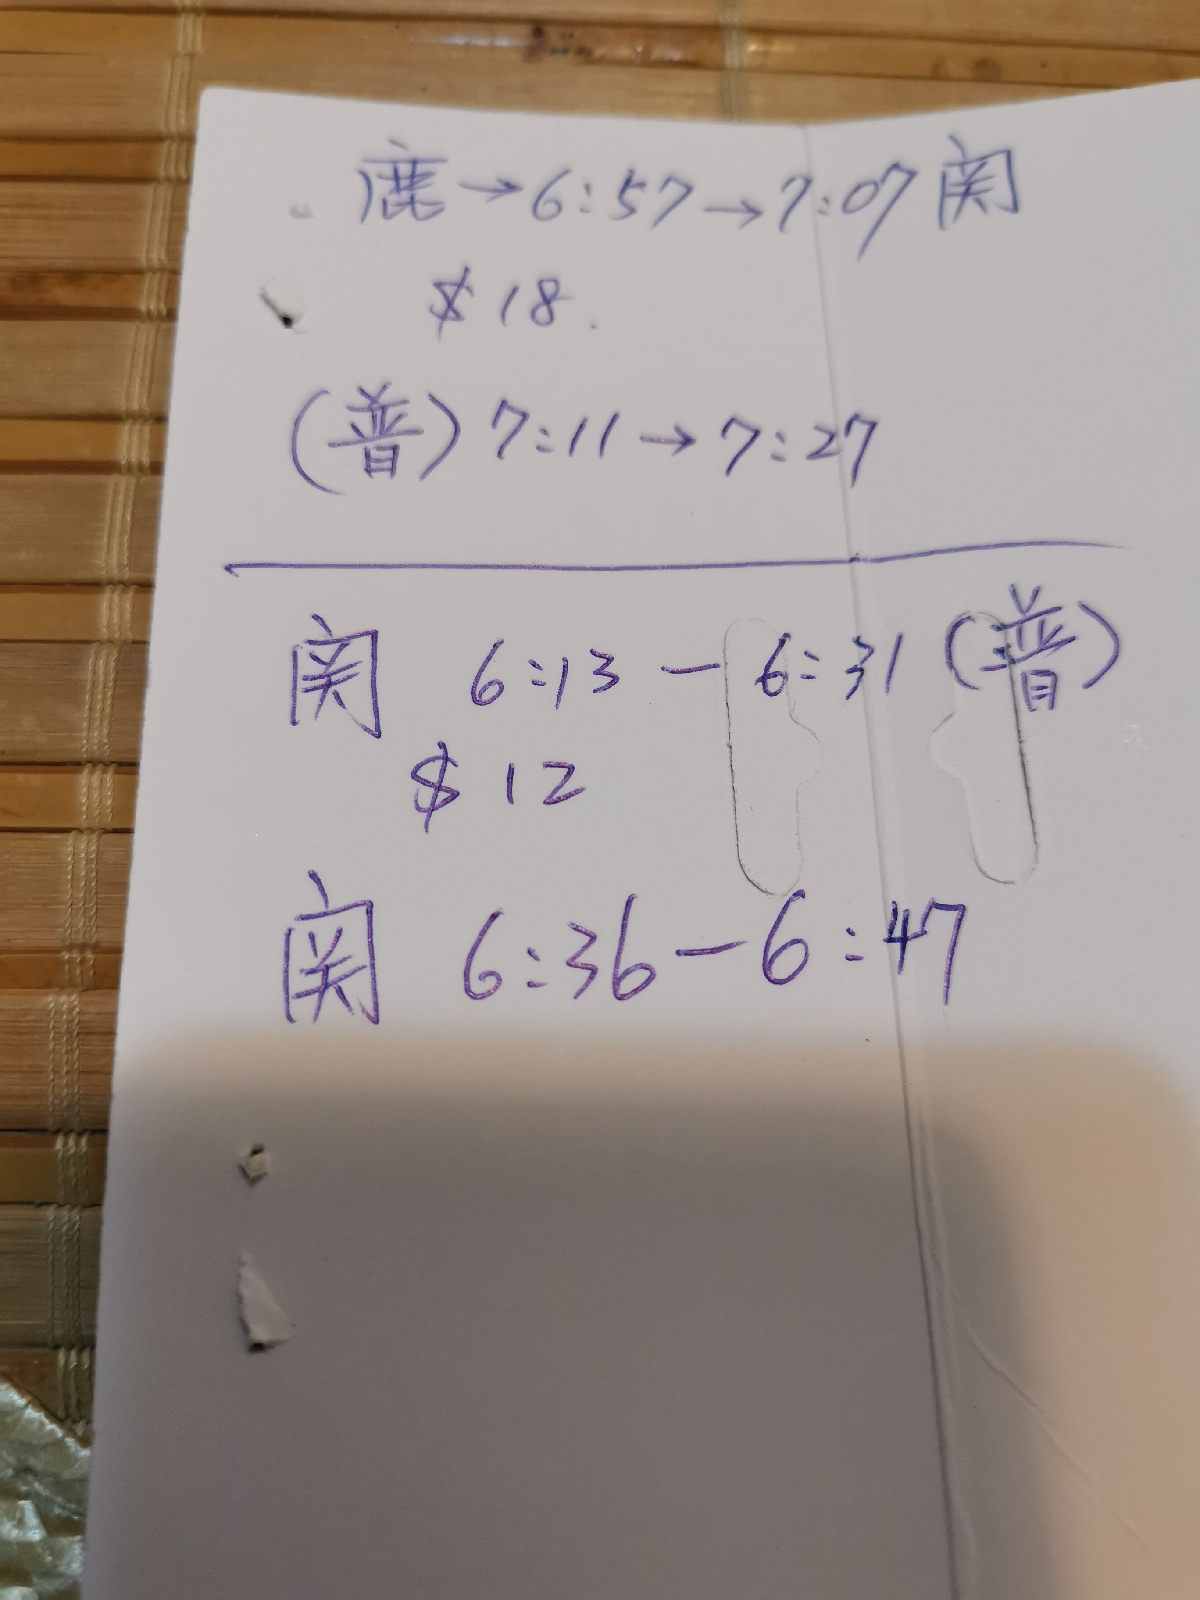 鹿→6:57→7:07関
$18.
(普)7:11→7:27
関 6:13-6:31(普)
$12
関 6:36-6:47